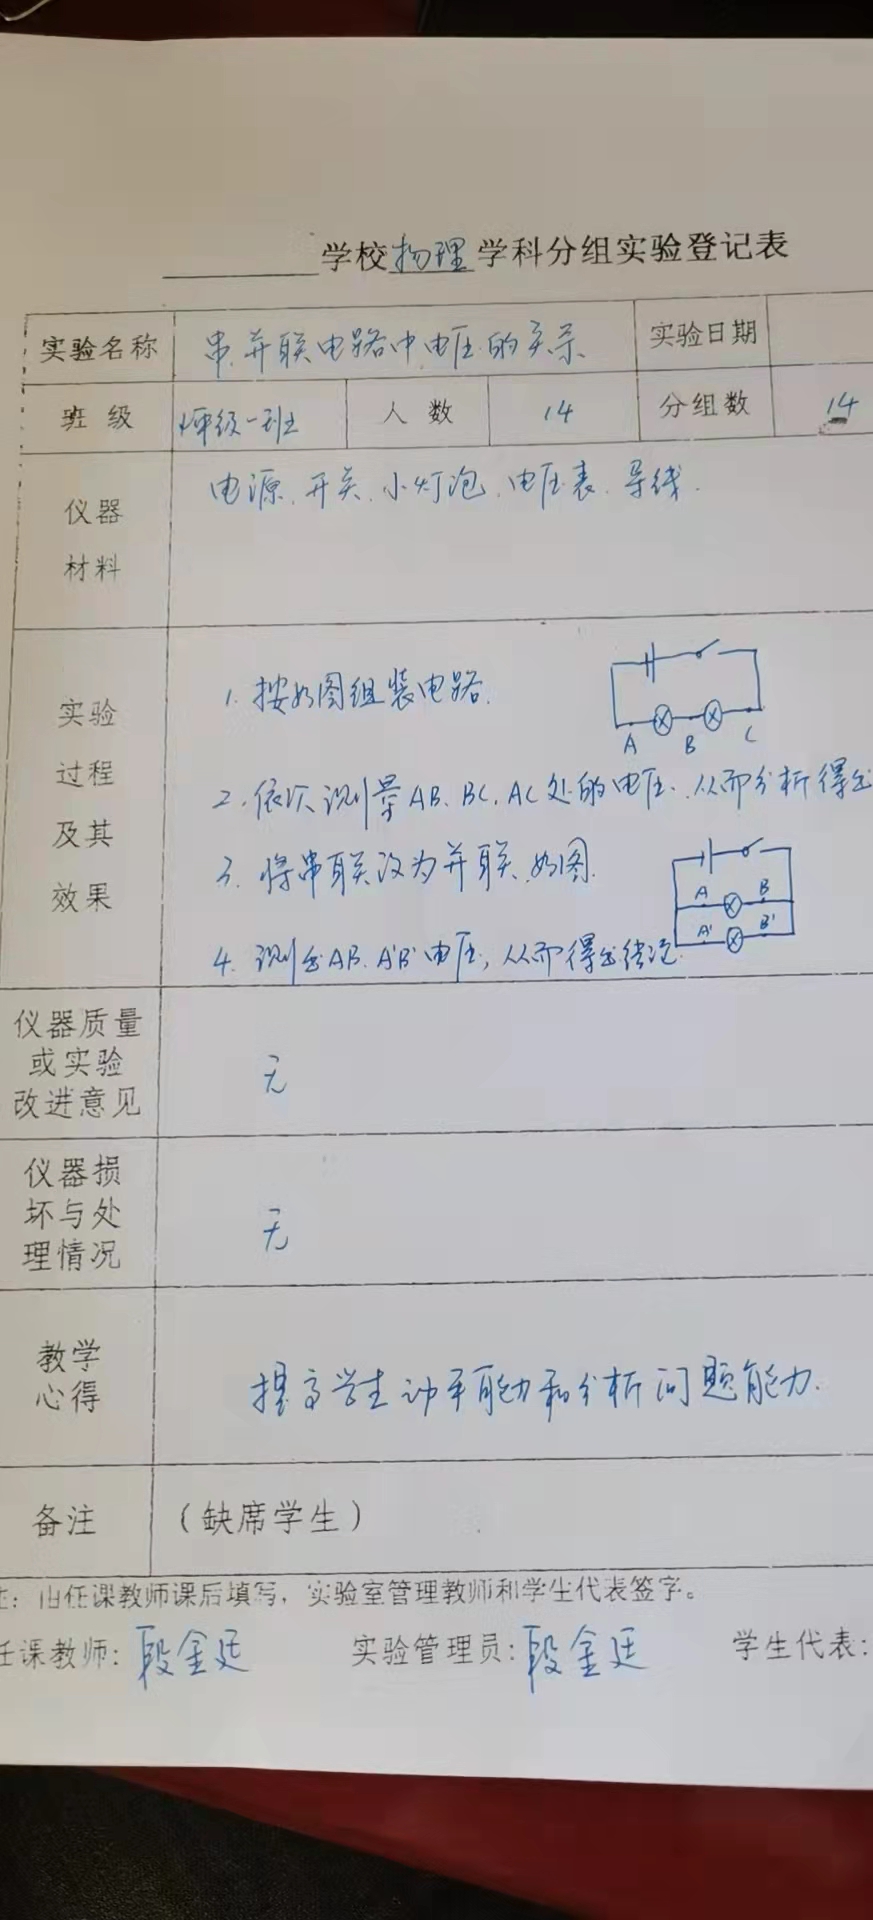 学校物理学科分组实验登记表
实验名称 串、并联电路中电压的关系 实验日期
班级 年级一班 人数 14 分组数 14
仪器材料 电源、开关、小灯泡、电压表、导线.
实验过程及其效果
1. 按如图组装电路.
A B C
2. 依次测量AB、BC、AC处的电压、从而分析得出
3. 将串联改为并联、如图.
A B
A' B'
4. 测出AB、A'B'电压,从而得出结论.
仪器质量或实验改进意见 无
仪器损坏与处理情况 无
教学心得 提高学生动手能力和分析问题能力.
备注 (缺席学生)
:由任课教师课后填写，实验室管理教师和学生代表签字。
任课教师:段金廷 实验管理员:段金廷 学生代表: